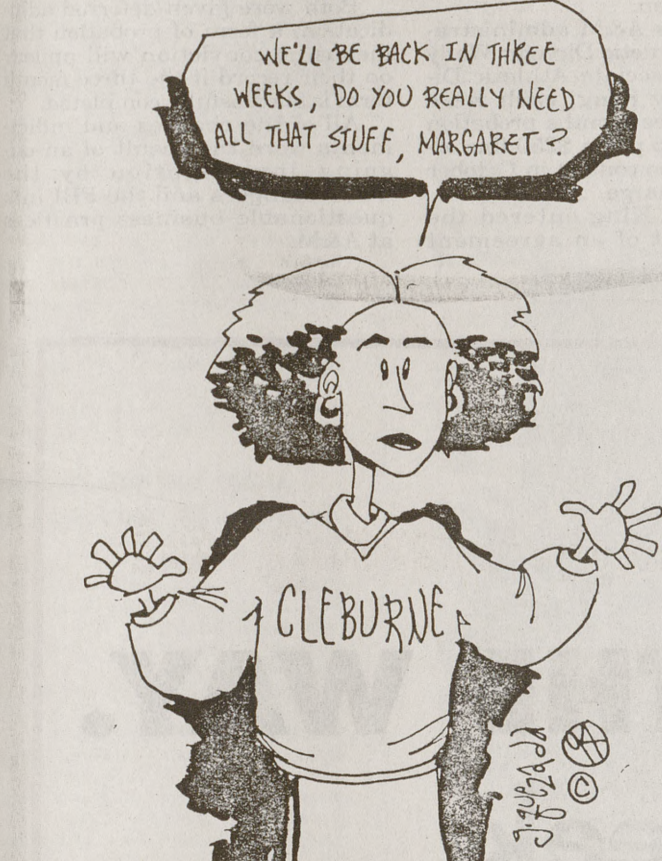 WE'LL BE BACK IN THREE
WEEKS, DO YOU REALLY NEED
ALL THAT STUFF, MARGARET?
CLEBURNE
J. QUEZADA
©